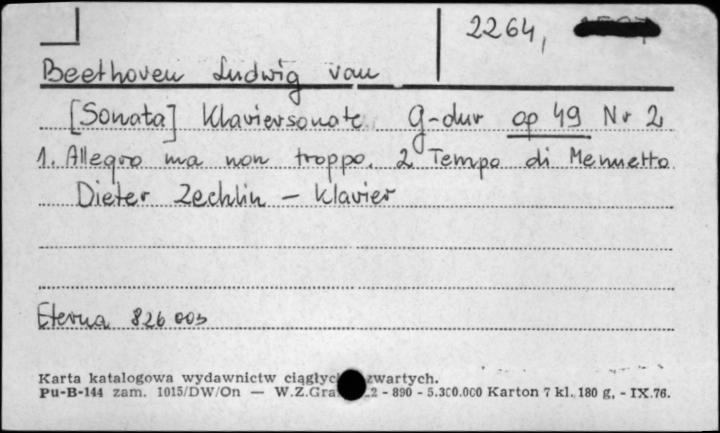 2264,
Beethoven Ludwig van
[Sonata] Klaviersonate G-dur op 49 Nr 2
1. Allegro ma non troppo. 2 Tempo di Menuetto
Dieter Zechlin – Klavier
Eterna 826 003
Karta katalogowa wydawnictw zwartych.
Pu-B-144 zam. 1015/DW/On — W.Z.Gra - 890 - 5.300.000 Karton 7 kl. 180 g, - IX.76.